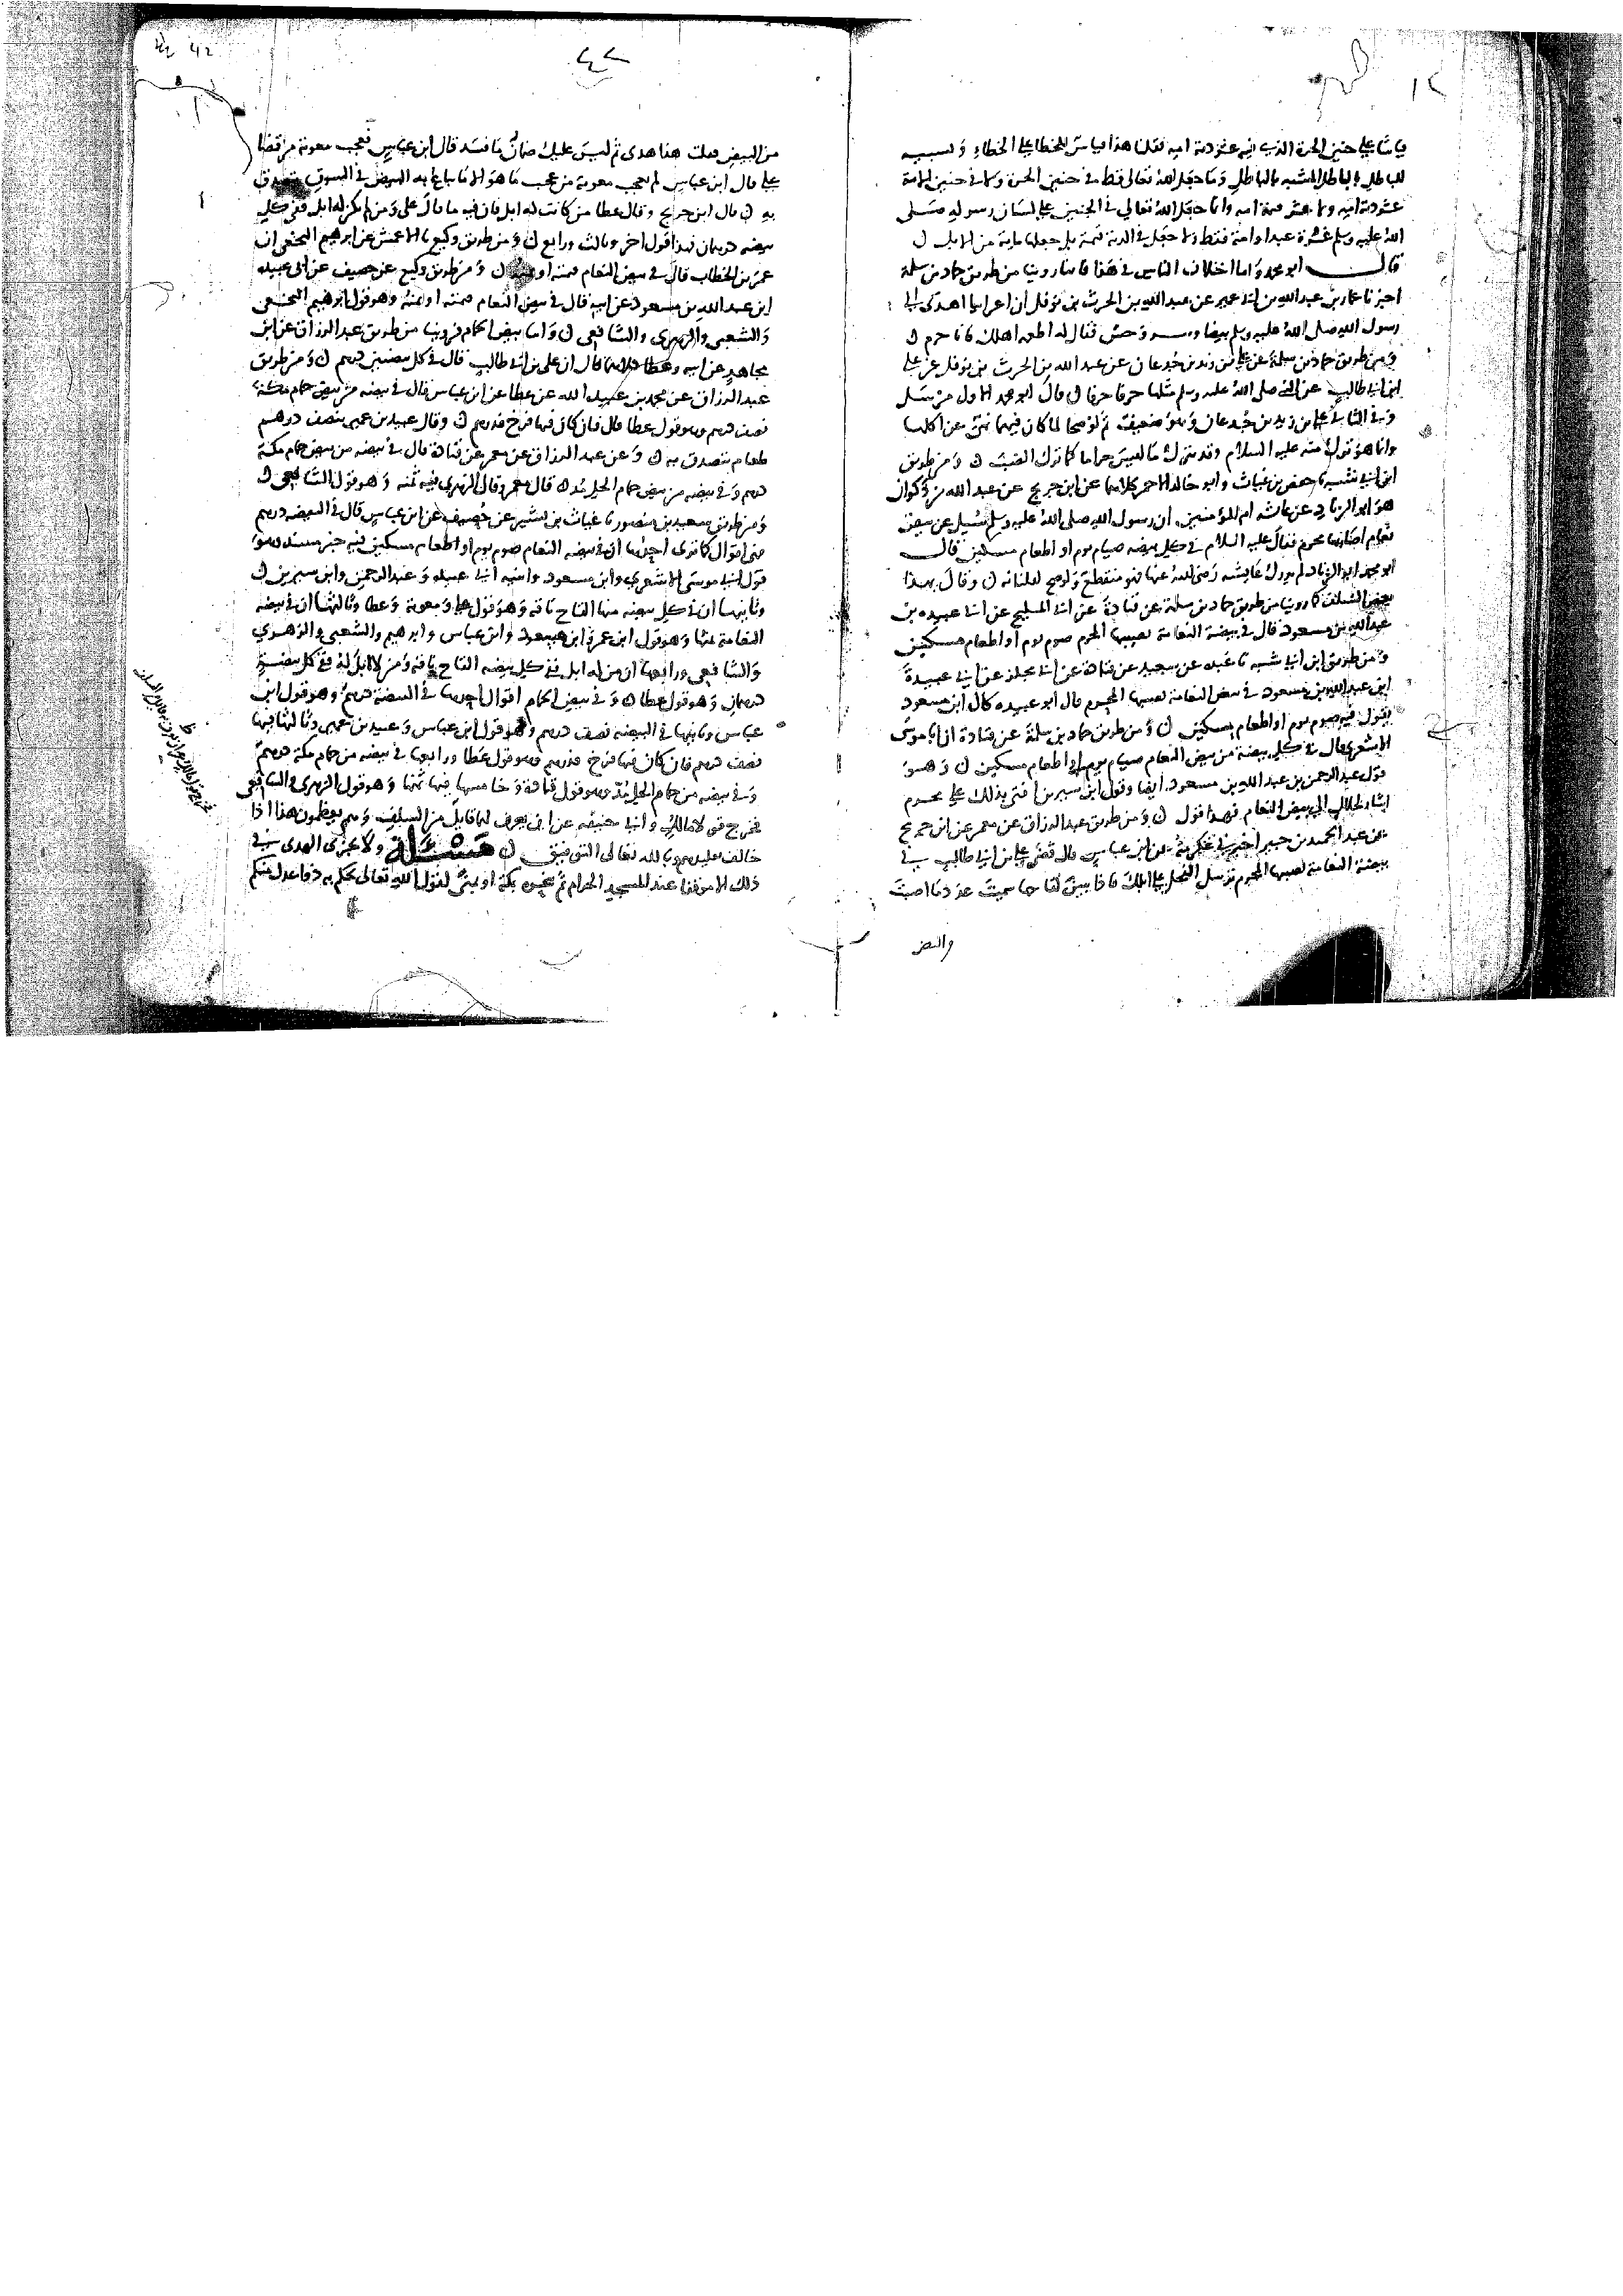 قياسا على جنين الحرة الذي فيه عشر دية امه فقلنا هذا قياس للخطا على الخطاء وتشبيه
للباطل بالباطل المشبه بالباطل وما جعل الله تعالى قط في جنين الحرة ولا في جنين الامة
عشر دية امه ولا عشر قيمة امه وانما جعل الله تعالى في الجنين على لسان رسوله صلى
الله عليه وسلم غرة عبدا او امة فقط ولا جعل في الدية قيمة بل جعلها ماية من الابل
قال ابو محمد واما اختلاف الناس في هذا فاننا روينا من طريق حماد بن سلمة
اخبرنا عمار بن عبد الله بن ابي عمير عن عبد الله بن الحرث بن نوفل ان اعرابيا اهدى الى
رسول الله صلى الله عليه وسلم بيضا وحش فقال له اطعمه اهلك فانا حرم
ومن طريق حماد بن سلمة عن علي بن زيد بن جدعان عن عبد الله بن الحرث بن نوفل عن علي
ابن ابي طالب عن النبي صلى الله عليه وسلم مثلها حرفا حرفا قال ابو محمد الاول مرسل
وفي الثاني علي بن زيد بن جدعان وهو ضعيف ثم لو صحا لما كان فيهما نهي عن اكلها
وانما هو ترك منه عليه السلام وقد يترك ما ليس حراما كما ترك الضب ومن طريق
ابن ابي شيبه نا حفص بن غياث وابو خالد الاحمر كلاهما عن ابن جريج عن عبد الله بن ذكوان
هو ابو الزناد عن عائشه ام المؤمنين ان رسول الله صلى الله عليه وسلم سئيل عن بيض
نعام اصابها محرم فقال عليه السلام في كل بيضه صيام يوم او اطعام مسكين قال
ابو محمد ابو الزناد لم يدرك عائشه رضي الله عنها فهو منقطع ولو صح لقلنا به وقال بهذا
بعض السلف كما روينا من طريق حماد بن سلمة عن قتادة عن ابي المليح عن ابي عبيده بن
عبد الله بن مسعود قال في بيضة النعامة يصيبها المحرم صوم يوم او اطعام مسكين
ومن طريق ابن ابي شيبه نا عبده عن سعيد عن قتادة عن ابي مجلز عن ابي عبيدة
ابن عبد الله بن مسعود في بيض النعامة يصيبها المحرم قال ابو عبيده كان ابن مسعود
يقول فيه صوم يوم او اطعام مسكين ومن طريق حماد بن سلمة عن قتادة ان ابا موسى
الاشعري قال في كل بيضة من بيض النعام صيام يوم او اطعام مسكين وهو
قول عبد الرحمن بن عبد الله بن مسعود ايضا وقول ابن سيرين افتى بذلك على محرم
اشار لحلال الى بيض النعام فهذا قول ومن طريق عبد الرزاق عن معمر عن ابن جريج
عن عبد الحميد بن جبير اخبرني عكرمة عن ابن عباس قال قضى علي بن ابي طالب في
بيضة النعامة يصيبها المحرم ترسل الفحل على ابلك فاذا تبين لقاحها سميت عدد ما اصبت
والبيض
من البيض فقلت هذا هدي ثم ليس عليك ضمان ما فسد قال ابن عباس فعجب معوية من قضا
علي قال ابن عباس لم يعجب معوية من عجب ما هو الا ما يباع به البيض في السوق يتصدق
به قال ابن جريج وقال عطا من كانت له ابل فان فيه ما قال علي ومن لم يكن له ابل ففي كل
بيضه درهمان فهذا قول اخر وثالث ورابع ومن طريق وكيع نا الاعمش عن ابرهيم النخعي ان
عمر بن الخطاب قال في بيض النعام قيمته ومن طريق وكيع عن خصيف عن ابي عبيده
ابن عبد الله بن مسعود عن ابيه قال في بيض النعام قيمته او ثمنه وهو قول ابرهيم النخعي
والشعبي والزهري والشافعي واما بيض الحمام فروينا من طريق عبد الرزاق عن ابن
مجاهد عن ابيه وعطا كلاهما قال ان علي بن ابي طالب قال في كل بيضتين درهم ومن طريق
عبد الرزاق عن محمد بن عبيد الله عن عطا عن ابن عباس قال في بيضه من بيض حمام مكة
نصف درهم وهو قول عطا قال فان كان فيها فرخ فدرهم وقال عبيد بن عمير نصف درهم
طعام يتصدق به وعن عبد الرزاق عن معمر عن قتادة قال في بيضه من بيض حمام مكة
درهم وفي بيضه من بيض حمام الحل مد قال معمر وقال الزهري فيه ثمنه وهو قول الشافعي
ومن طريق سعيد بن منصور نا غياث بن بشير عن خصيف عن ابن عباس قال في البيضه درهم
فهي اقوال كما ترى احدها ان في بيضه النعام صوم يوم او اطعام مسكين فيه خبر مسند وهو
قول ابي موسى الاشعري وابن مسعود وابنيه ابي عبيده وعبد الرحمن وابن سيرين
وثانيها ان في كل بيضه منها القاح ناقه وهو قول علي ومعوية وعطا وثالثها ان في بيضه
النعامة ثمنها وهو قول ابن عمر وابن مسعود وابن عباس وابرهيم والشعبي والزهري
والشافعي ورابعها ان من له ابل ففي كل بيضه القاح ناقه ومن لا ابل له ففي كل بيضة
درهمان وهو قول عطا وفي بيض الحمام اقوال احدها في البيضة درهم وهو قول ابن
عباس وثانيها في البيضه نصف درهم وهو قول ابن عباس وعبيد بن عمير وثالثها فيها
نصف درهم فان كان فيها فرخ فدرهم وهو قول عطا ورابعها في بيضه من حمام مكة درهم
وفي بيضه من حمام الحل مد وهو قول قتادة وخامسها فيها ثمنها وهو قول الزهري والشافعي
فخرج قول مالك وابي حنيفه عن ان يعرف لهما قايل من السلف وهم يعظمون هذا اذا
خالف عليهم وبالله تعالى التوفيق مسئلة ولا يجزى الهدي في
ذلك الا موقفا عند المسجد الحرام ثم ينحر بمكة او بمنى لقول الله تعالى يحكم به ذوا عدل منكم